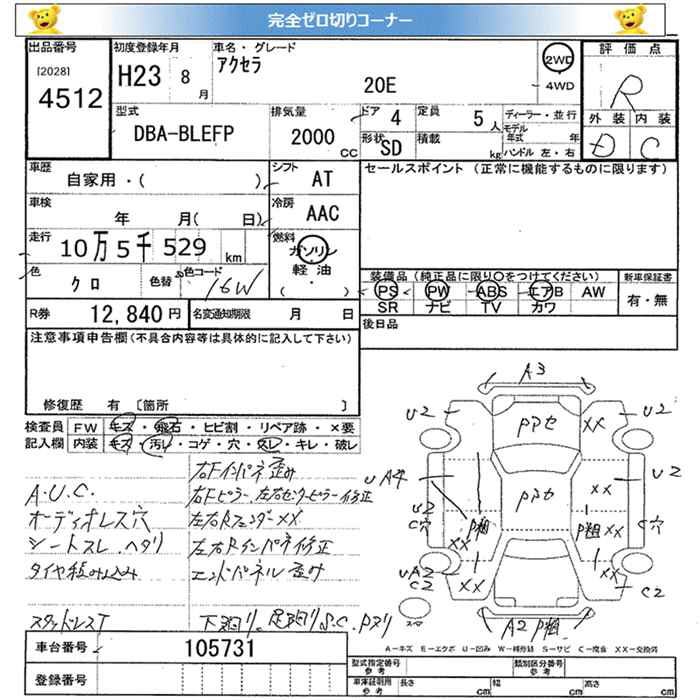 完全ゼロ切りコーナー
出品番号 初度登録年月 車名・グレード 評価点
[2028] アクセラ 2WD
4512 H23 8月 20E 4WD R
型式 排気量 ドア 4 定員 5人 ディーラー・並行 外装 内装
DBA-BLEFP 2000 CC 形状 SD 積載 kg モデル年式 年 D C
ハンドル 左・右
車歴 シフト セールスポイント (正常に機能するものに限ります)
自家用・( ) AT
車検 冷房
年 月( 日) AAC
走行 燃料
10万5千529km ガソリン
軽油
( )
色 色替 色コード 装備品 (純正品に限り○をつけてください) 新車保証書
クロ 16W PS PW ABS エアB AW 有・無
SR ナビ TV カワ
R券 12,840円 名変通知期限 月 日 後日品
注意事項申告欄(不具合内容等は具体的に記入して下さい)
修復歴 有 〔箇所 〕
検査員 FW キズ・飛石・ヒビ割・リペア跡・×要
記入欄 内装 キズ・汚れ・コゲ・穴・スレ・キレ・破レ
右Fインパネ歪み
A.U.C. 右Fピラー、左右センターピラー修正
オーディオレス穴 左右Rフェンダー××
シートスレ、ヘタリ 左右Rインパネ修正
タイヤ組み込み エンドパネル歪み
スタッドレスT 下廻り、足廻りS.C.Pヌリ
A3
U2 PPセ ×× U2
UA4 PPセ ×× U2
U2
C穴 P粗 P粗 ×× C穴
××
UA2 ×× ×× C2
C2
A2 P粗
A-キズ E-エクボ U-凹み W-補修跡 S-サビ C-腐食 XX-交換済
車台番号 105731
登録番号
型式指定番号 参考 類別区分番号 参考
車庫証明用 参考 長さ cm 幅 cm 高さ cm